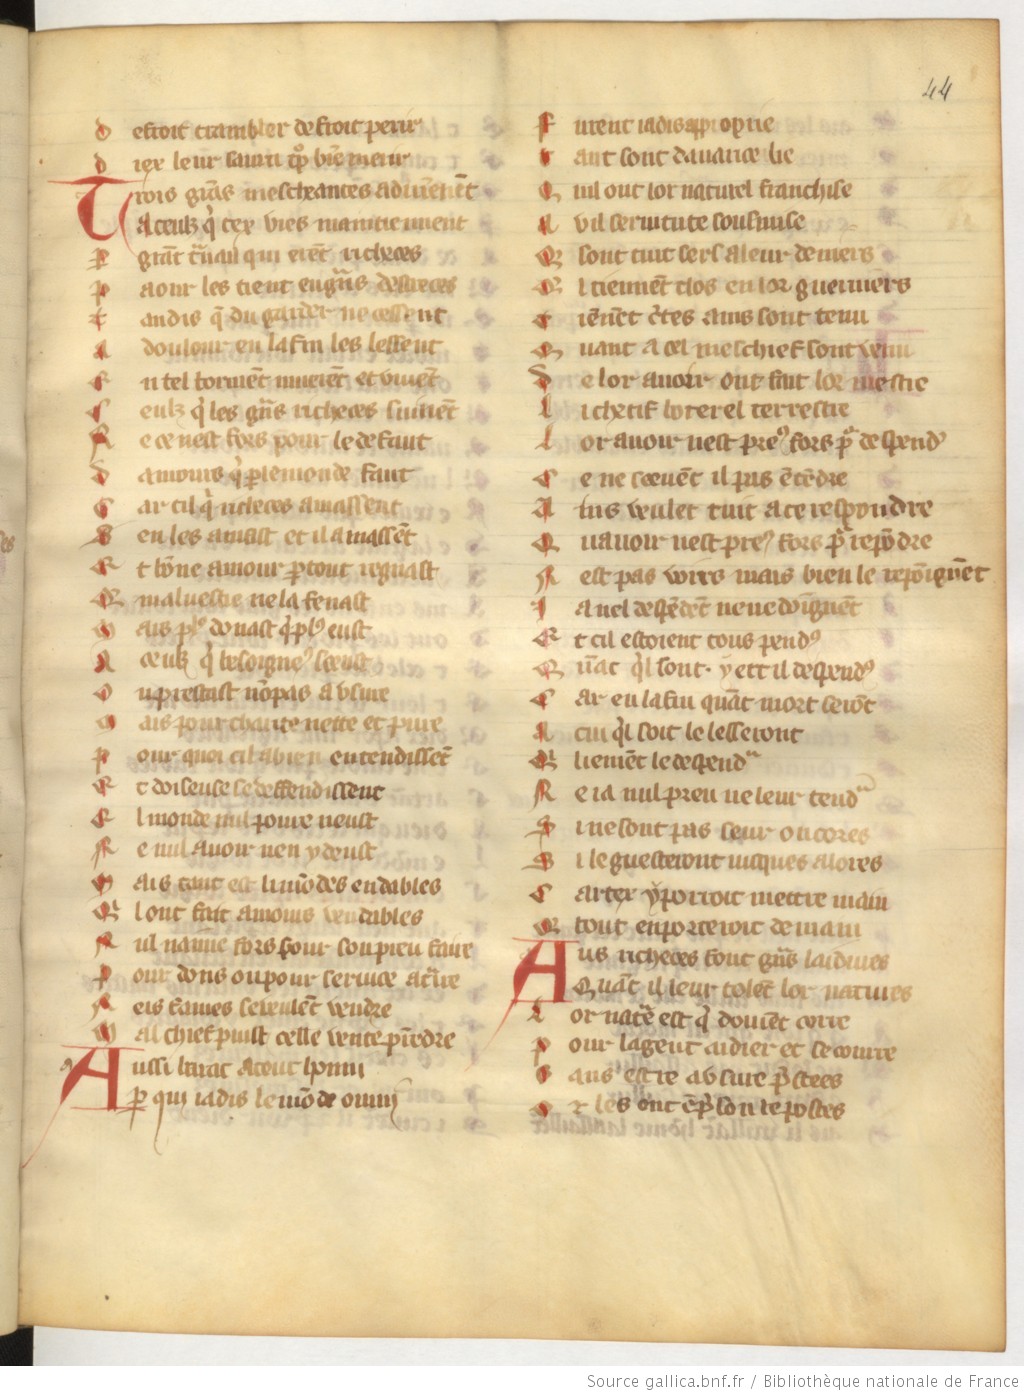 44
d estoit trambler destoit perir
d iex leur sauri qͥ biē merir
Trois grās mescheances adviēnēt
A ceulz q̇ tex vies maintienent
p grāt tͣuail quierēt richeces
p aour les tient en gͣns destreces
t andis q̄ du garder ne cessent
a doulour en la fin les lessent
e n tel tormēt muerēt et viuēt
c eulz q̇ les gͣns richeces suiuēt
N e ce nest fors pour le defaut
d amours q̇ ꝑ le monde faut
C ar cil q̇ richeces amassent
S en les amast et il amassēt
E t bōne amour ꝑtout regnast
Q maluestie ne la fenast
m ais plꝰ donast q̇ plꝰ eust
A ceulz q̇ besoigneꝰ sceust
O u prestast nōpas a vsure
m ais pour charite nette et pure
p our quoi cil a bien entendissēt
E t doiseuse se deffendissent
E l monde nul poure neust
N e nul auoir nen y deust
m ais tant est li mōdes endables
Q l ont fait amours vendables
N ul naime fors pour son preu faire
p our dons ou pour seruice atͬire
N eis fames se veulēt vendre
m al chief puist celle vente prēdre
Aussi barat a tout hōnni
ꝑ qui iadis le mōde ouni
F urent iadis approprie
t ant sont dauarice lie
Q uil ont lor naturel franchise
A vil seruitute sousmise
Q sont tuit serf a leur deniers
Q l tiennēt clos en lor guerniers
t iēnēt cͤtes ains sont tenu
Q uant a cel meschief sont venu
D e lor auoir ont fait lor mestre
l i chetif boterel terrestre
l or auoir nest preꝰ fors pͬ despendͬ
c e ne sceuēt il pas ētēdre
A ins veulet tuit a ce respondre
Q uauoir nest preꝰ fors pͬ repōdre
N est pas voirs mais bien le repōignēt
J a nel despēdēt ne ne dōignēt
E t cil estoient tous pendꝰ
Q nāt q̇l sont y ert il despendꝰ
C ar en la fin quāt mort serōt
A cui q̇l soit le lesseront
Q liemēt le despendͬ
N e ia nul preu ne leur tendͬ
S i ne sont pas seur oncores
S il guesteront iusques a lores
C ar tex y porroit mettre main
Q tout enporteroit demain
Aus richeces font gͣns laidures
Quāt il leur tolēt lor natures
L or natͬe est q̇ doiuēt corre
p our la gent aidier et secourre
S ans estre a vsure pͤstees
A les ont cēpl̄ don repostes
Source gallica.bnf.fr / Bibliothèque nationale de France